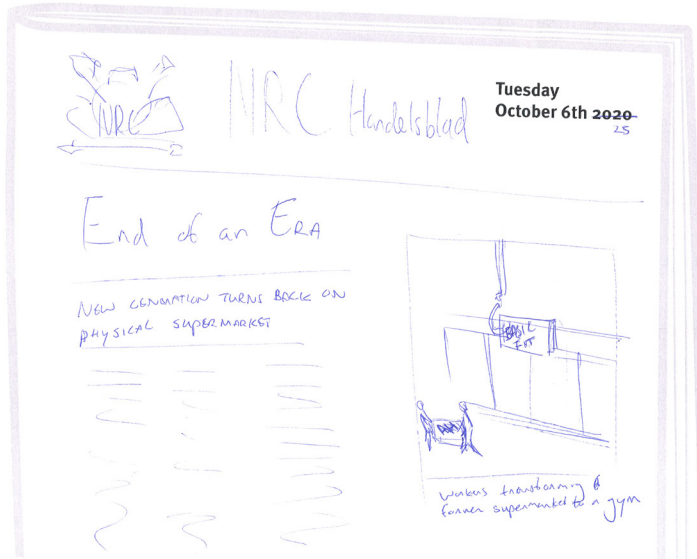 NRC
NRC Handelsblad
Tuesday
October 6th 2020
25
End of an ERA
NEW GENERATION TURNS BACK ON
PHYSICAL SUPERMARKET
BASIC
FIT
workers transforming a
former supermarket to a gym